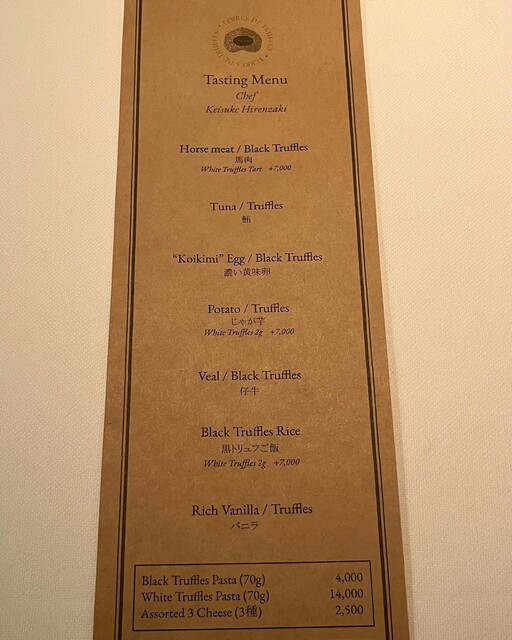 TERRES DE TRUFFES • TERRES DE TRUFFES •
Tasting Menu
Chef
Keisuke Hirenzaki
Horse meat / Black Truffles
馬肉
White Truffles Tart +7,000
Tuna / Truffles
鮪
“Koikimi” Egg / Black Truffles
濃い黄味卵
Potato / Truffles
じゃが芋
White Truffles 2g +7,000
Veal / Black Truffles
仔牛
Black Truffles Rice
黒トリュフご飯
White Truffles 2g +7,000
Rich Vanilla / Truffles
バニラ
Black Truffles Pasta (70g) 4,000
White Truffles Pasta (70g) 14,000
Assorted 3 Cheese (3種) 2,500